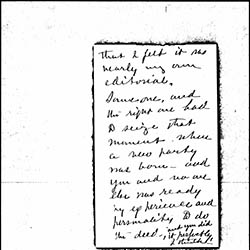 that I felt it was
nearly my own
editorial.
Someone, and
the right one had
to seize that
moment where
a new party
was born - and
you and no one
else was ready
in experience and
personality to do
the deed, and you did
it perfectly